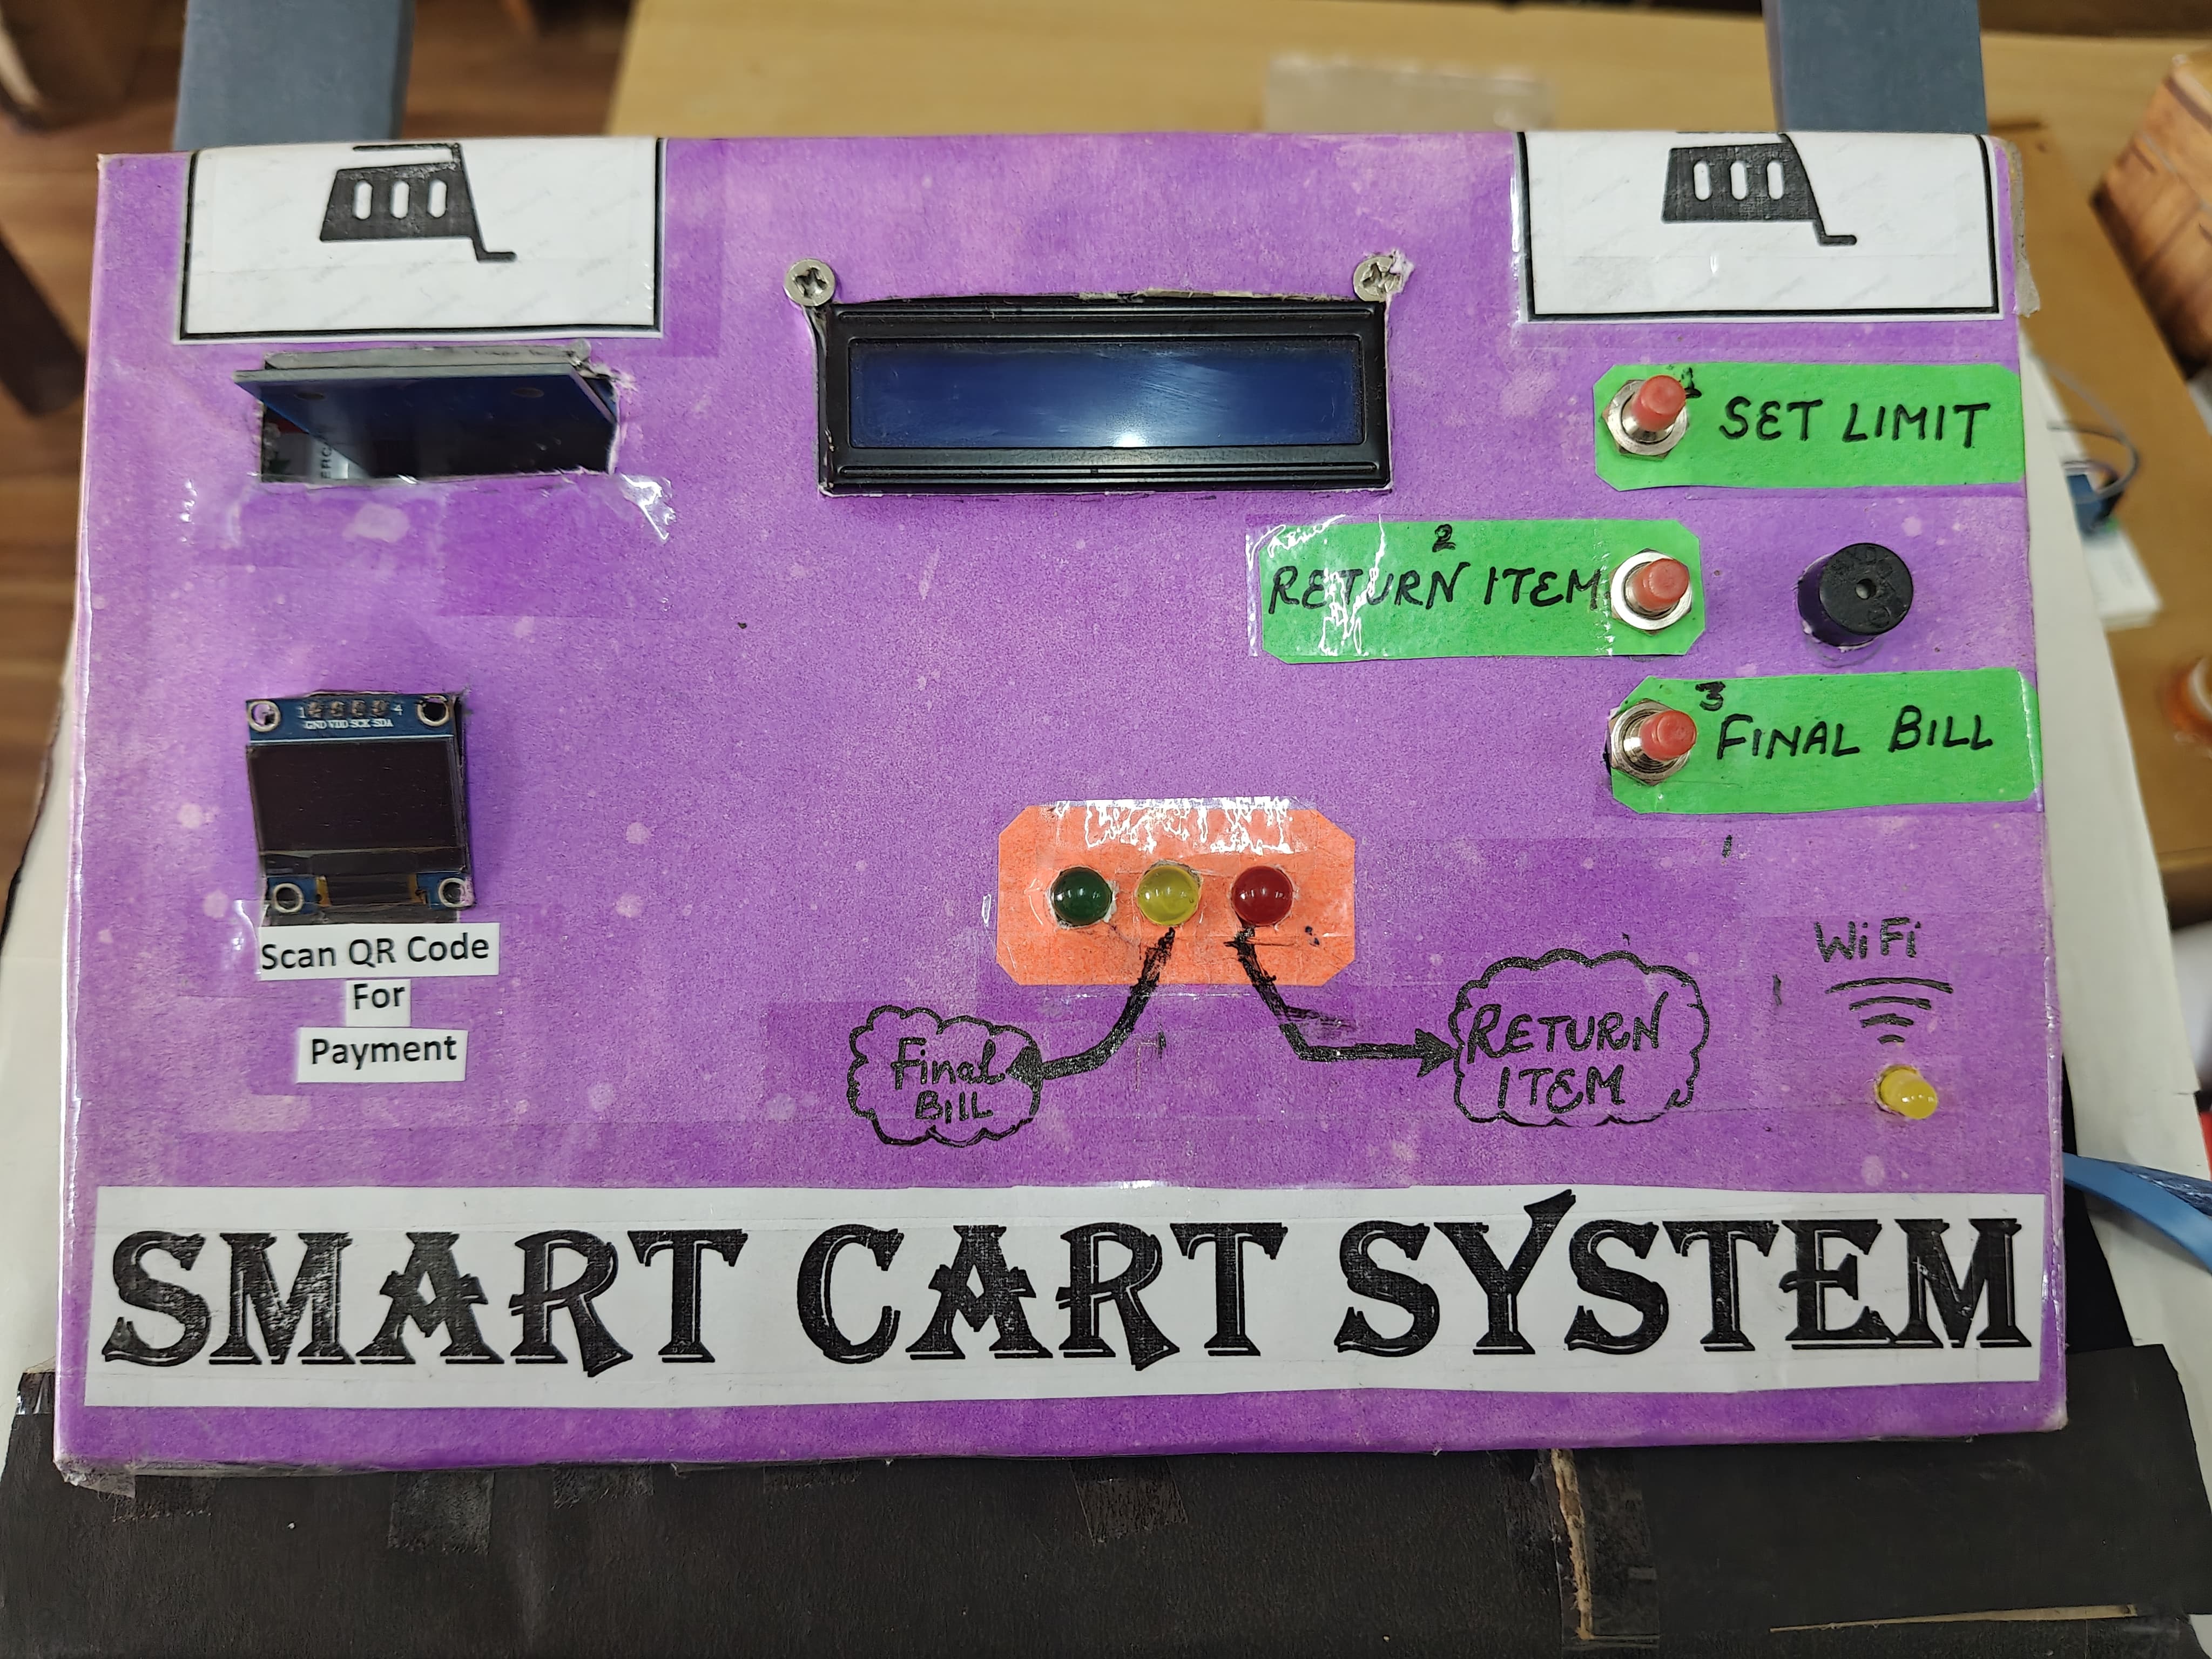 1
SET LIMIT
2
RETURN ITEM
3
FINAL BILL
1 4
GND VDD SCK SDA
Scan QR Code
For
Payment
Final
BILL
RETURN
ITEM
WiFi
SMART CART SYSTEM